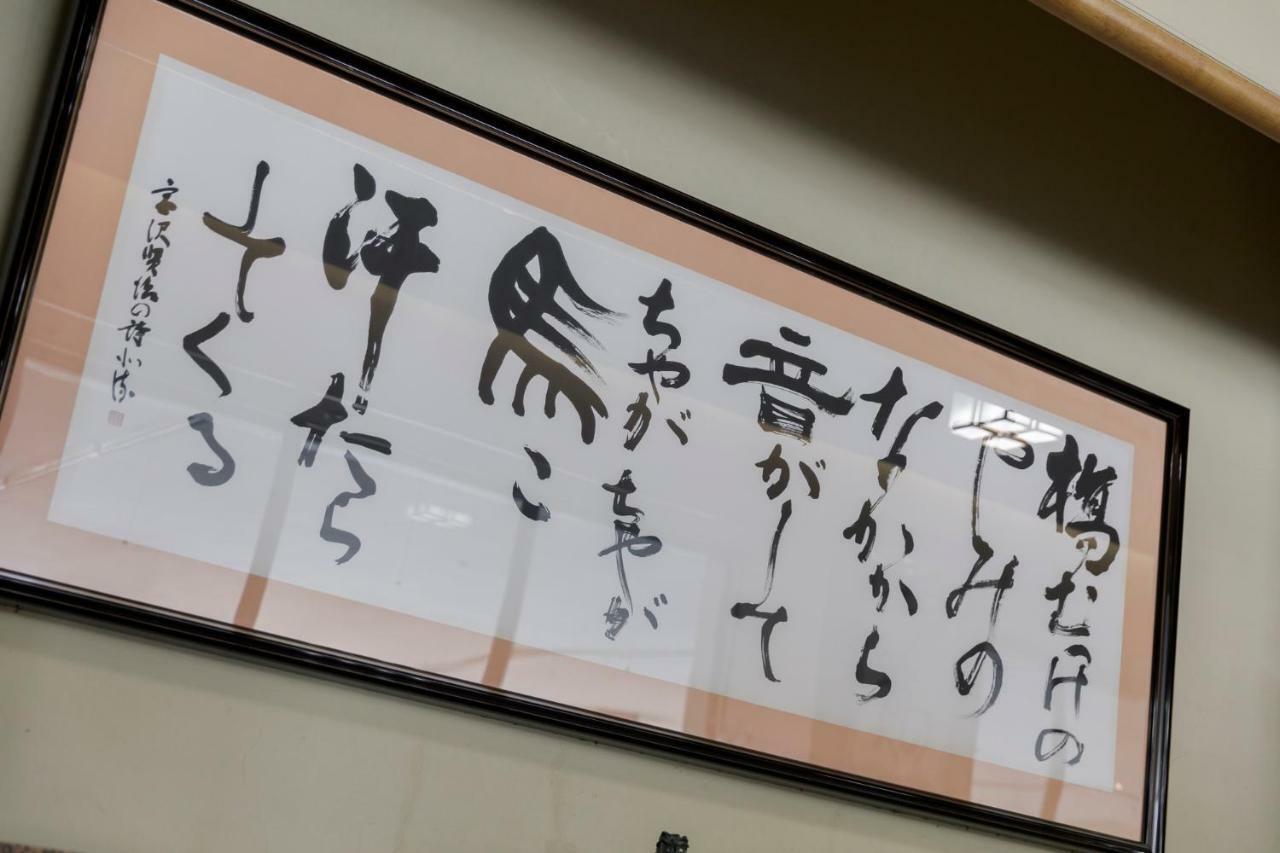 橋むけの
やしみの
なかから
音がして
ちやがちやが
馬こ
汗たら
してくる
宮沢賢治の詩